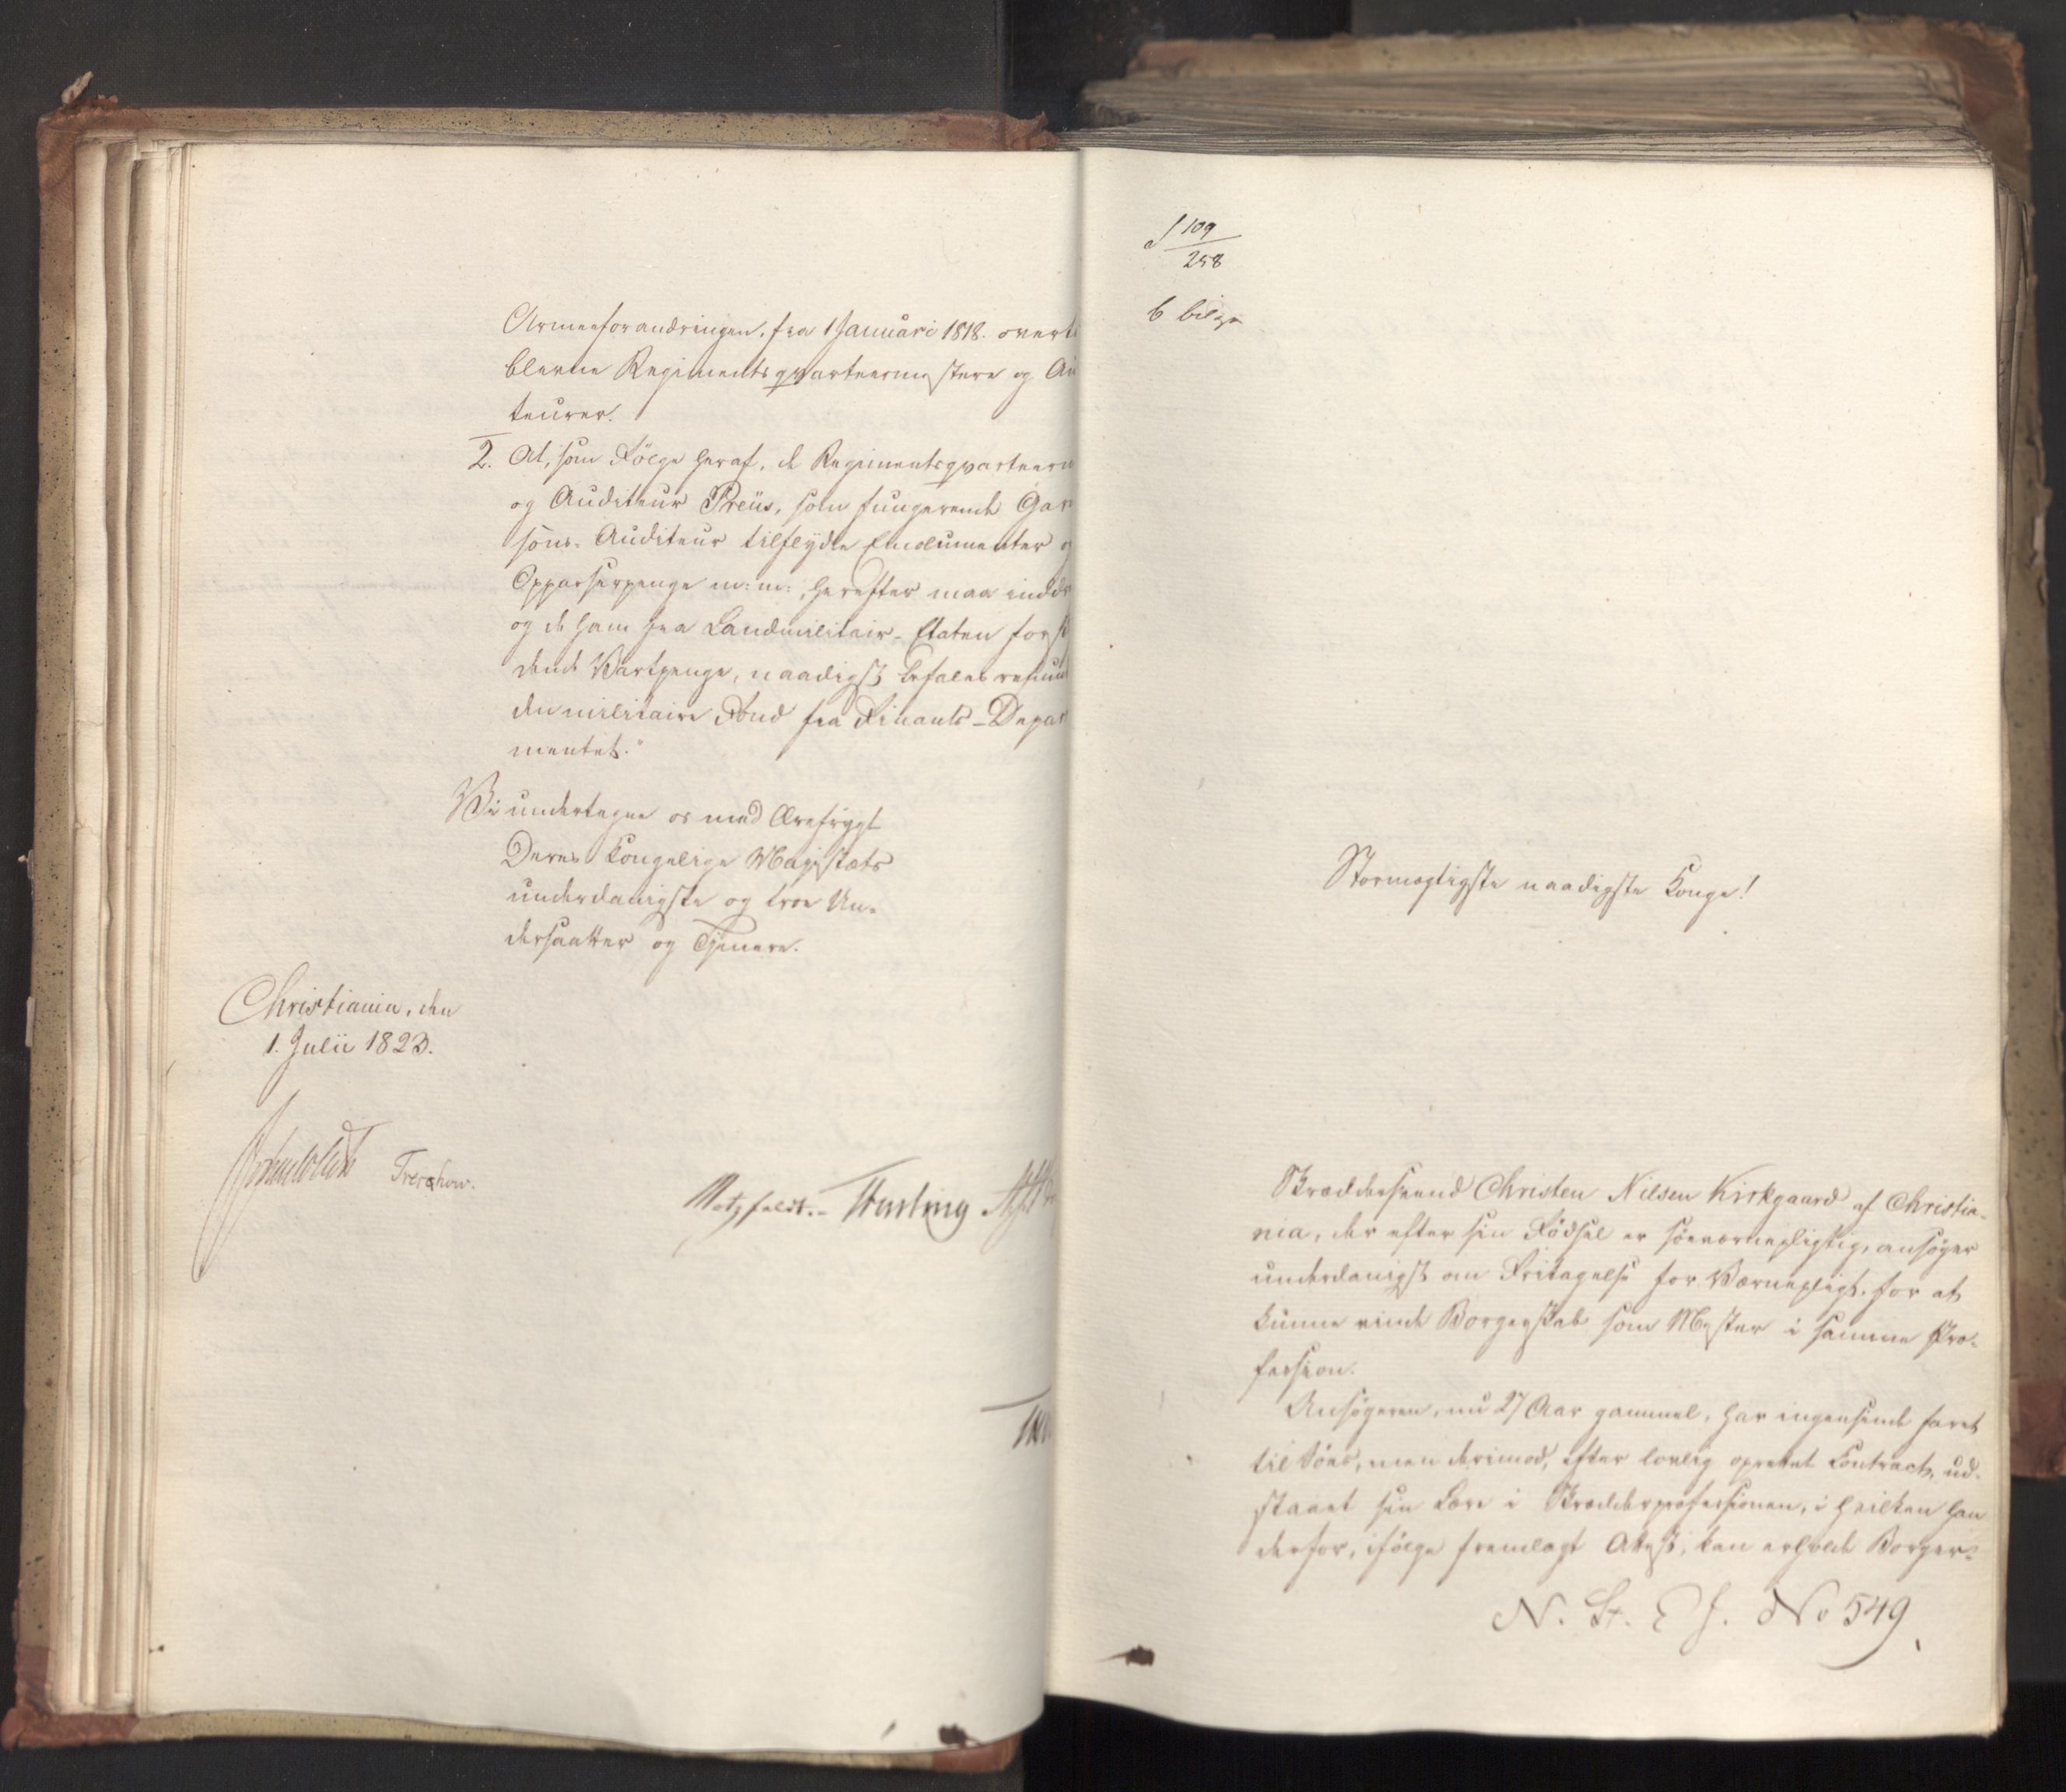 Armeeforandringen, fra 1 Januari 1818. overt
blevne Regimentsqvarteermestere og Au
teurer.
2. At, som Følge heraf, de Regimentsqvarteerm
og Auditeur Preüs, som fungerende Gar
sons-Auditeur tilflydte Emolumenter o
Oppasserpenge m: m:, herefter maa indd
og de ham fra Landmilitair-Etaten for
dende Vartpenge, naadigst befales
den militaire Fond fra Finants-Depar
mentet."
Vi undertegne os med Ærefrygt
Deres Kongelige Majestæts
underdanigste og troe Un-
dersaatter og Tjenere.
Christiania, den
1. Julii 1823.
Treschow.
Motzfeldt.
109
258
6 bilge
Stormægtigste naadigste Konge!
Skræddersvend Christen Nilsen Kirkgaard af Christia-
nia, der efter sin Fødsel er søeværnepligtig, ansøger
underdanigst om Fritagelse for Værnepligt, for at
kunne vinde Borgerskab som Mester i samme Pro-
fession.
Ansøgeren, nu 27 Aar gammel, har ingensinde faret
til Søes, men derimod, efter lovlig oprettet Contract, ud-
staaet sin Lære i Skrædderprofessionen, i hvilken han
derfor, ifølge fremlagt Attest, kan erholde Borger-
N. St. E J. No 549